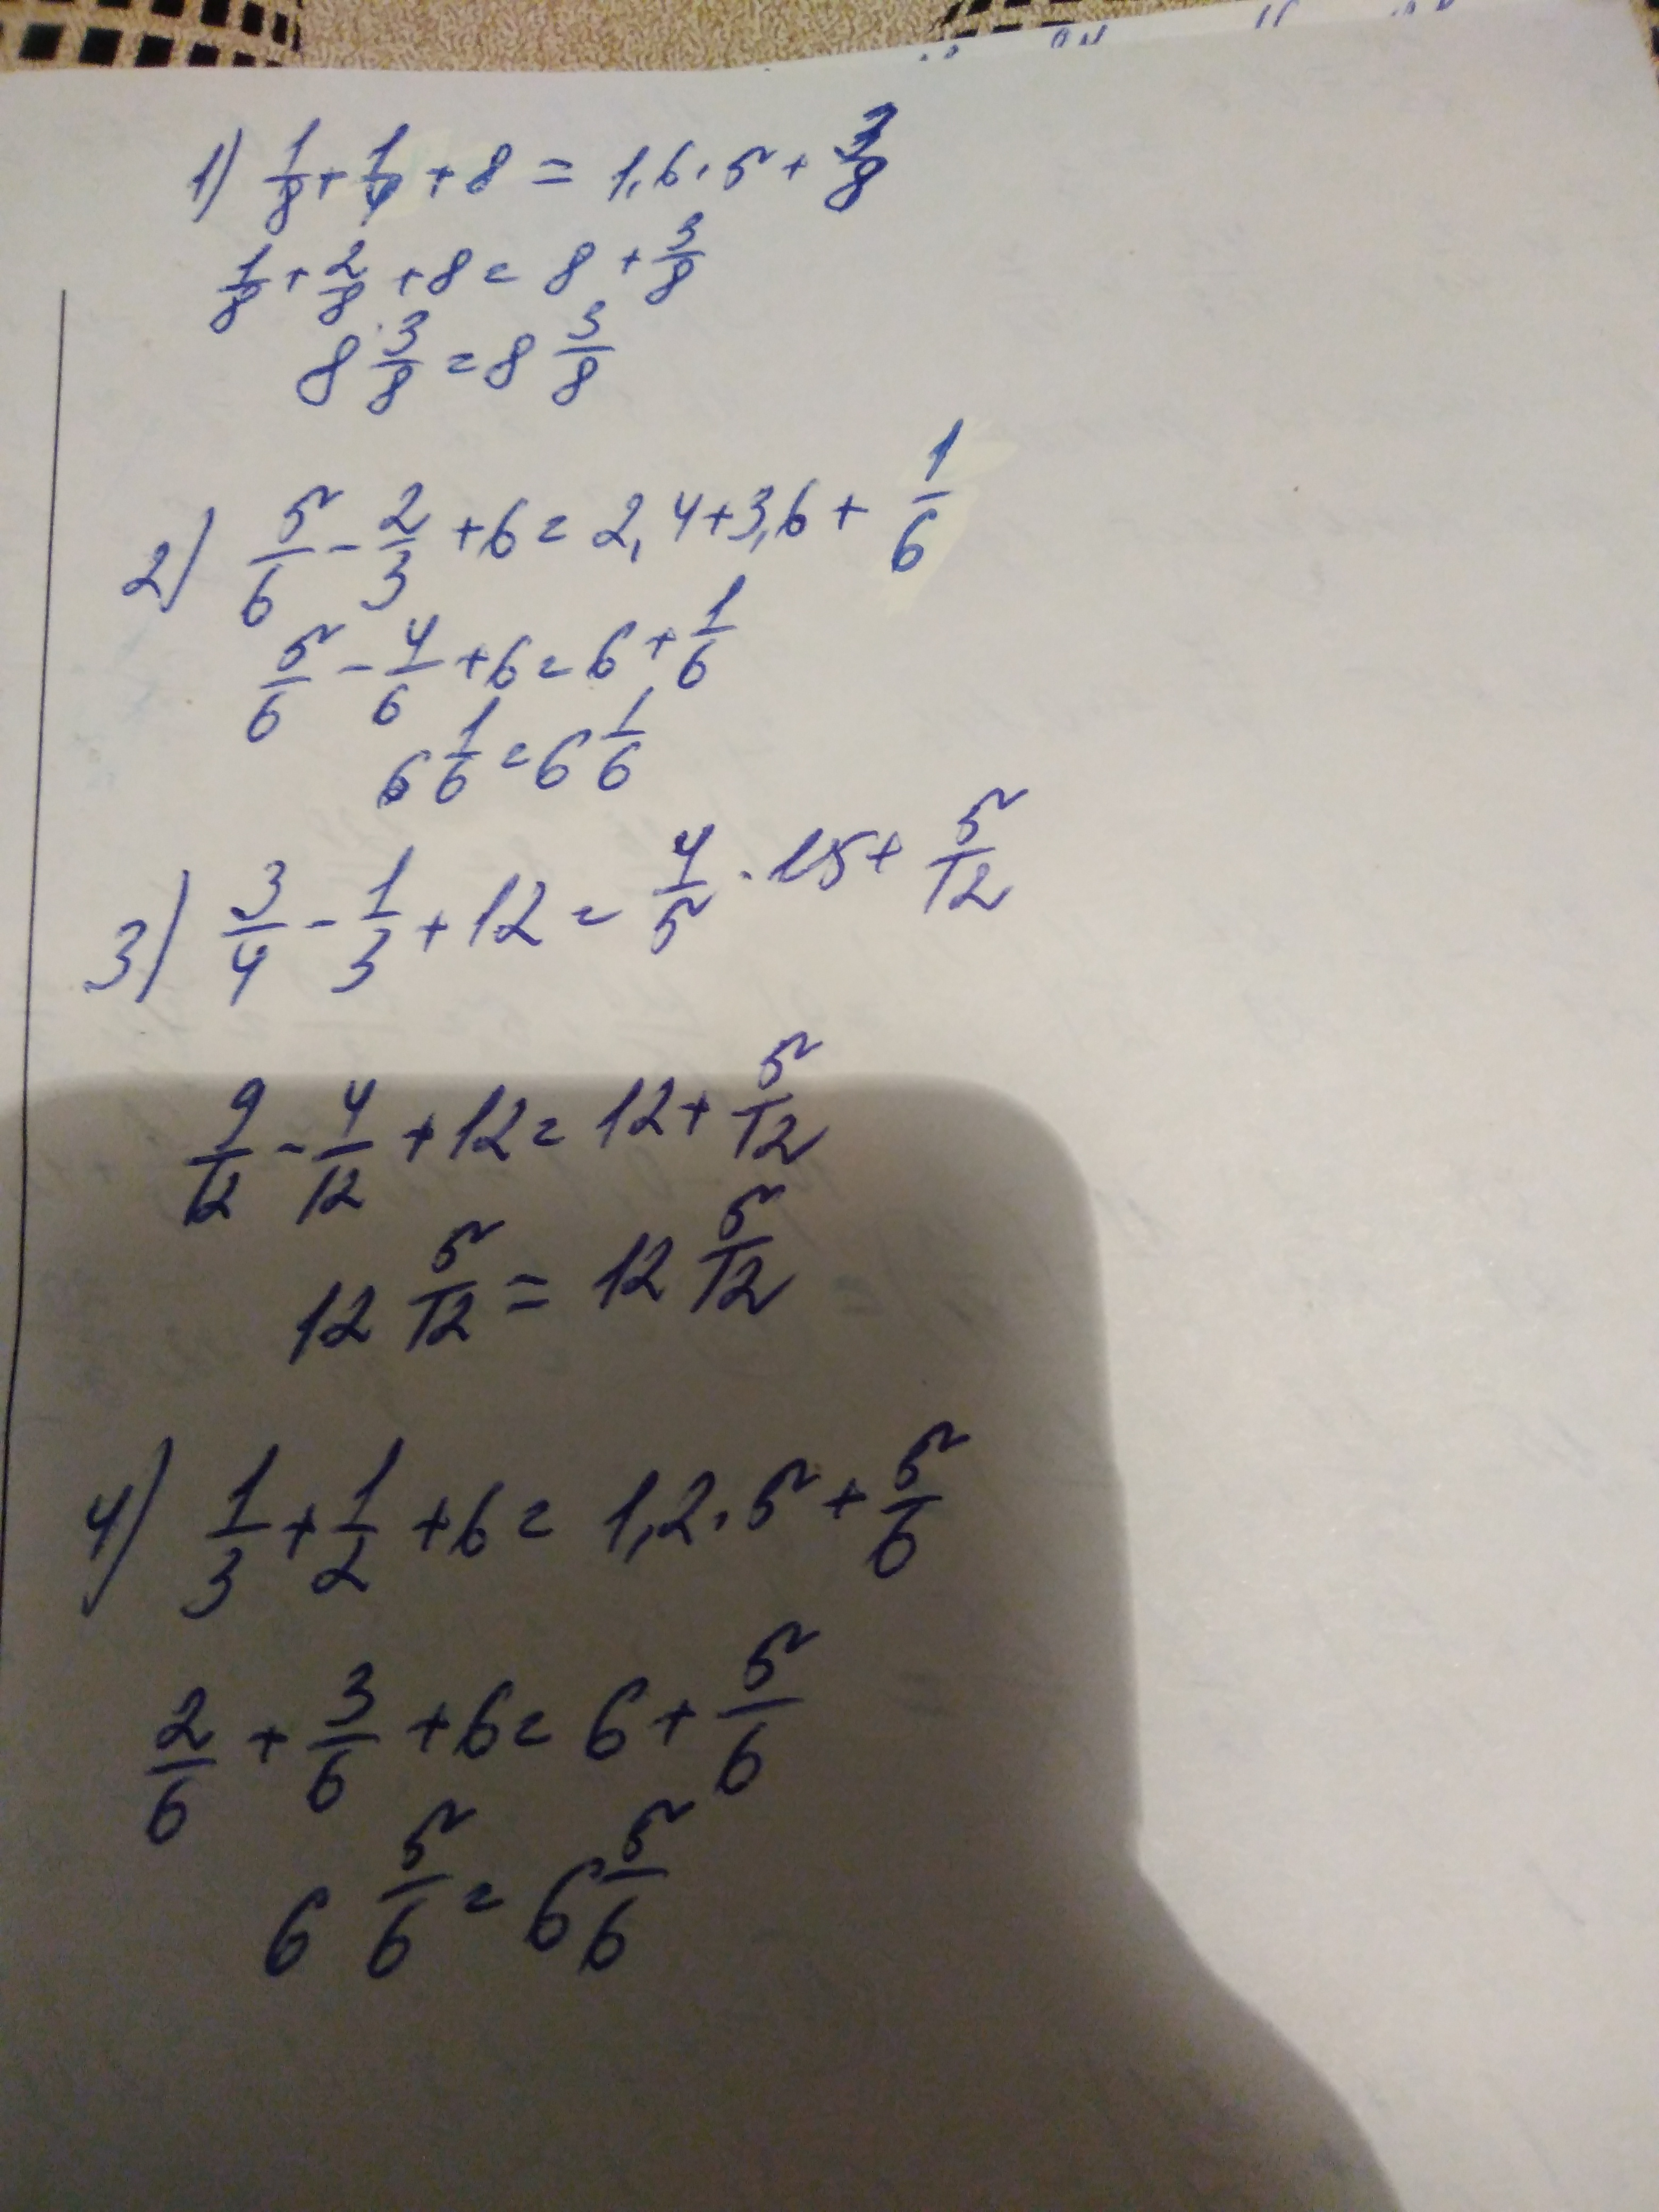 1) 1/8 + 1/4 + 8 = 1,6 · 5 + 3/8
1/8 + 2/8 + 8 = 8 + 3/8
8 3/8 = 8 3/8
2) 5/6 - 2/3 + 6 = 2,4 + 3,6 + 1/6
5/6 - 4/6 + 6 = 6 + 1/6
6 1/6 = 6 1/6
3) 3/4 - 1/3 + 12 = 4/5 · 15 + 5/12
9/12 - 4/12 + 12 = 12 + 5/12
12 5/12 = 12 5/12
4) 1/3 + 1/2 + 6 = 1,2 · 5 + 5/6
2/6 + 3/6 + 6 = 6 + 5/6
6 5/6 = 6 5/6